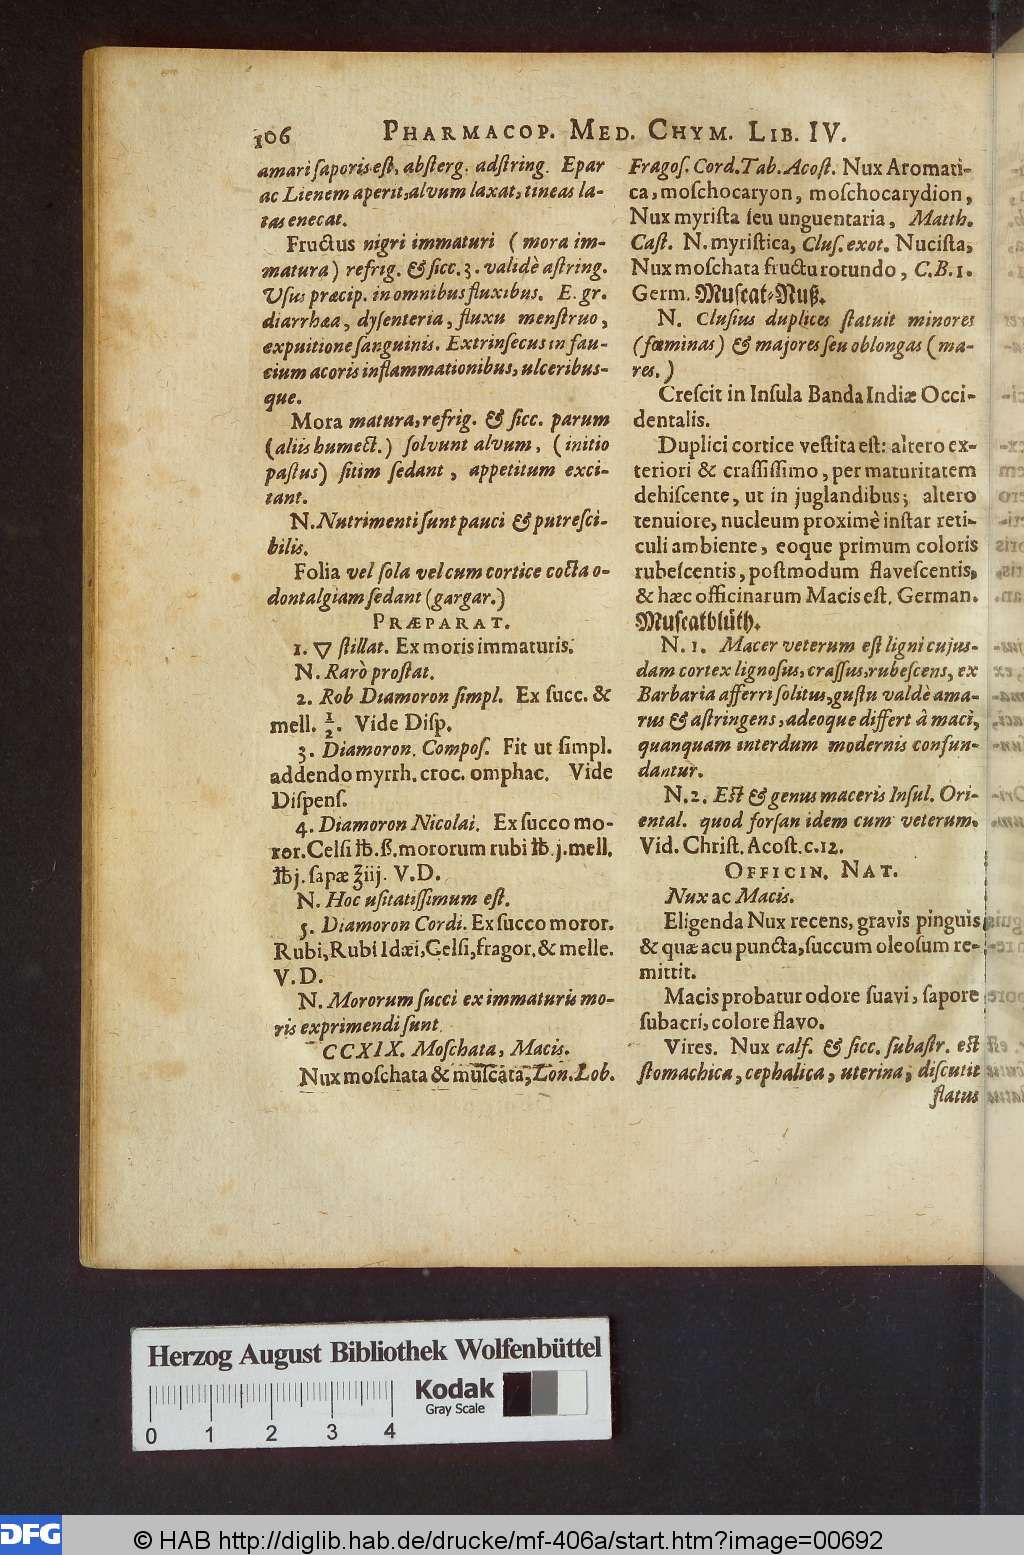 106
PHARMACOP. MED. CHYM. LIB. IV.
amari ſaporis eſt, abſterg. adſtring. Epar
ac Lienem aperit, alvum laxat, tineas la-
tas enecat.
Fructus nigri immaturi (mora im-
matura) refrig. & ſicc. 3. validè aſtring.
Uſus præcip. in omnibus fluxibus. E. gr.
diarrhœa, dyſenteria, fluxu menſtruo,
expuitione ſanguinis. Extrinſecus in fau-
cium acoris inflammationibus, ulceribus-
que.
Mora matura, refrig. & ſicc. parum
(aliis humect.) ſolvunt alvum, (initio
paſtus) ſitim ſedant, appetitum exci-
tant.
N. Nutrimenti ſunt pauci & putreſci-
bilis.
Folia vel ſola vel cum cortice cocta o-
dontalgiam ſedant (gargar.)
PRÆPARAT.
1. 🜄 ſtillat. Ex moris immaturis.
N. Rarò proſtat.
2. Rob Diamoron ſimpl. Ex ſucc. &
mell. ½. Vide Diſp.
3. Diamoron. Compoſ. Fit ut ſimpl.
addendo myrrh. croc. omphac. Vide
Diſpenſ.
4. Diamoron Nicolai. Ex ſucco mo-
ror. Celſi ℔.ß. mororum rubi ℔.j. mell.
℔j. ſapæ ℥iij. V.D.
N. Hoc uſitatiſſimum eſt.
5. Diamoron Cordi. Ex ſucco moror.
Rubi, Rubi Idæi, Celſi, fragor. & melle.
V.D.
N. Mororum ſucci ex immaturis mo-
ris exprimendi ſunt.
CCXIX. Moſchata, Macis.
Nux moſchata & muſcata, Lon. Lob.
Fragoſ. Cord. Tab. Acoſt. Nux Aromati-
ca, moſchocaryon, moſchocarydion,
Nux myriſta ſeu unguentaria, Matth.
Caſt. N. myriſtica, Cluſ. exot. Nuciſta,
Nux moſchata fructu rotundo, C.B. 1.
Germ. Muſcat-Nuß.
N. Cluſius duplices ſtatuit minores
(fœminas) & majores ſeu oblongas (ma-
res.)
Creſcit in Inſula Banda Indiæ Occi-
dentalis.
Duplici cortice veſtita eſt: altero ex-
teriori & craſſiſſimo, per maturitatem
dehiſcente, ut in juglandibus; altero
tenuiore, nucleum proximè inſtar reti-
culi ambiente, eoque primum coloris
rubeſcentis, poſtmodum flaveſcentis,
& hæc officinarum Macis eſt. German.
Muſcatblüth.
N. 1. Macer veterum eſt ligni cujus-
dam cortex lignoſus, craſſus, rubeſcens, ex
Barbaria afferri ſolitus, guſtu valdè ama-
rus & aſtringens, adeoque differt â maci,
quanquam interdum modernis confun-
dantur.
N. 2. Eſt & genus maceris Inſul. Ori-
ental. quod forſan idem cum veterum.
Vid. Chriſt. Acoſt. c. 12.
OFFICIN. NAT.
Nux ac Macis.
Eligenda Nux recens, gravis pinguis
& quæ acu puncta, ſuccum oleoſum re-
mittit.
Macis probatur odore ſuavi, ſapore
ſubacri, colore flavo.
Vires. Nux calf. & ſicc. ſubaſtr. eſt
ſtomachica, cephalica, uterina, diſcutit
flatus
Herzog August Bibliothek Wolfenbüttel
Kodak
Gray Scale
0 1 2 3 4
DFG
© HAB http://diglib.hab.de/drucke/mf-406a/start.htm?image=00692